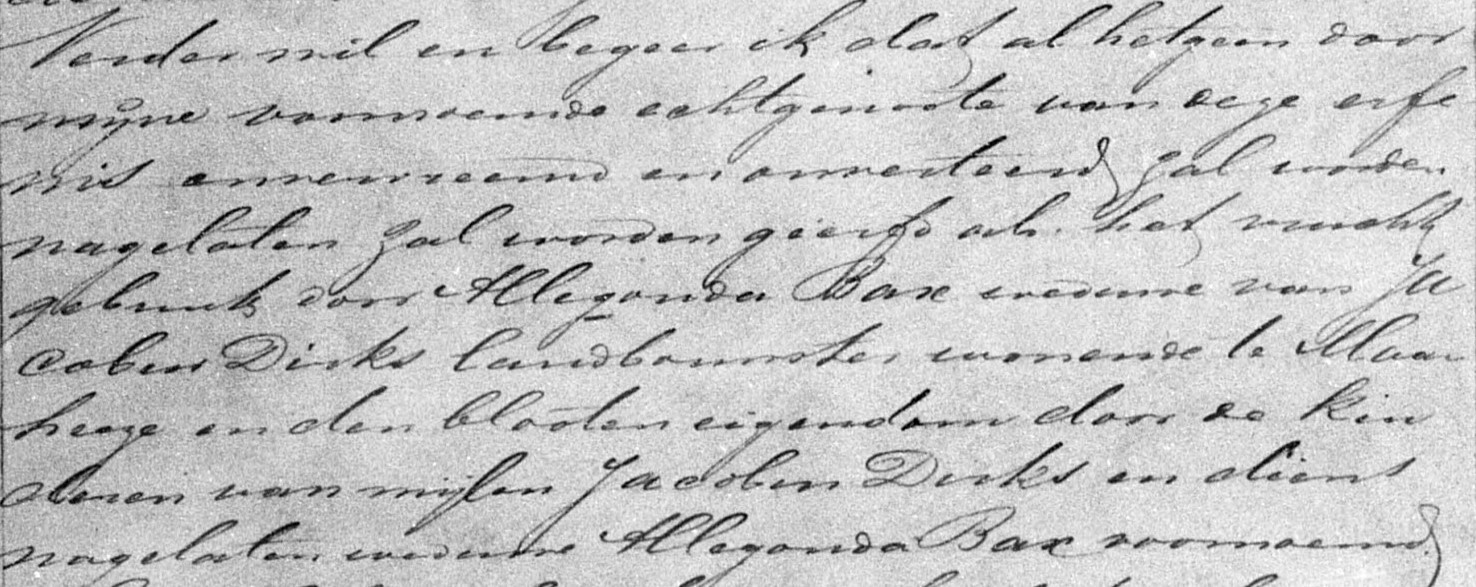 Verder wil en begeer ik dat al hetgeen door
mijne voornoemde echtgenoote van deze erfe
nis onvervreemd en onverteerd zal worden
nagelaten zal worden geërfd als het vrucht
gebruik door Allegonda Bax weduwe van Ja
cobus Dirks landbouwster wonende te Maar
heeze en den blooten eigendom door de kin
deren van wijlen Jacobus Dirks en diens
nagelaten weduwe Allegonda Bax voornoemd